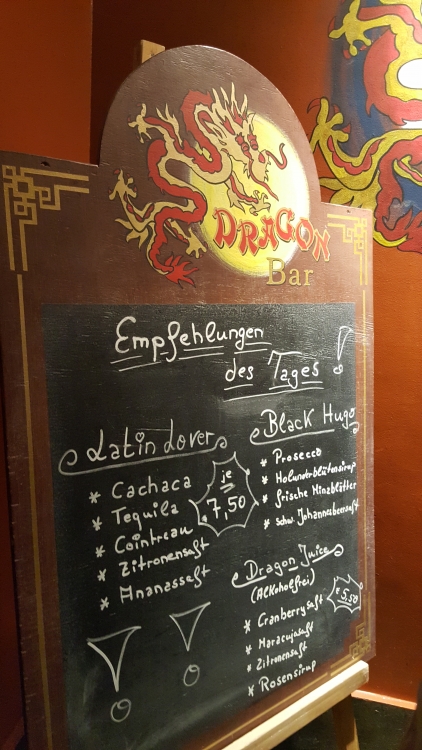 DRAGON
Bar
Empfehlungen
des Tages!
Latin Lover
* Cachaca
* Tequila
* Cointreau
* Zitronensaft
* Ananassaft
je
7,50
Black Hugo
* Prosecco
* Holunderblütensirup
* frische Minzblätter
* schw. Johannesbeersaft
Dragon Juice
(Alkoholfrei)
* Cranberrysaft
* Maracujasaft
* Zitronensaft
* Rosensirup
€ 5,50
! !